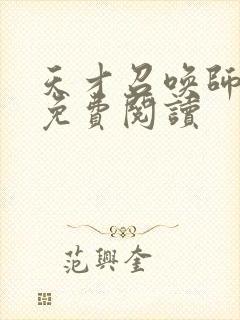 天才召喚師
免費閱讀
范興奎